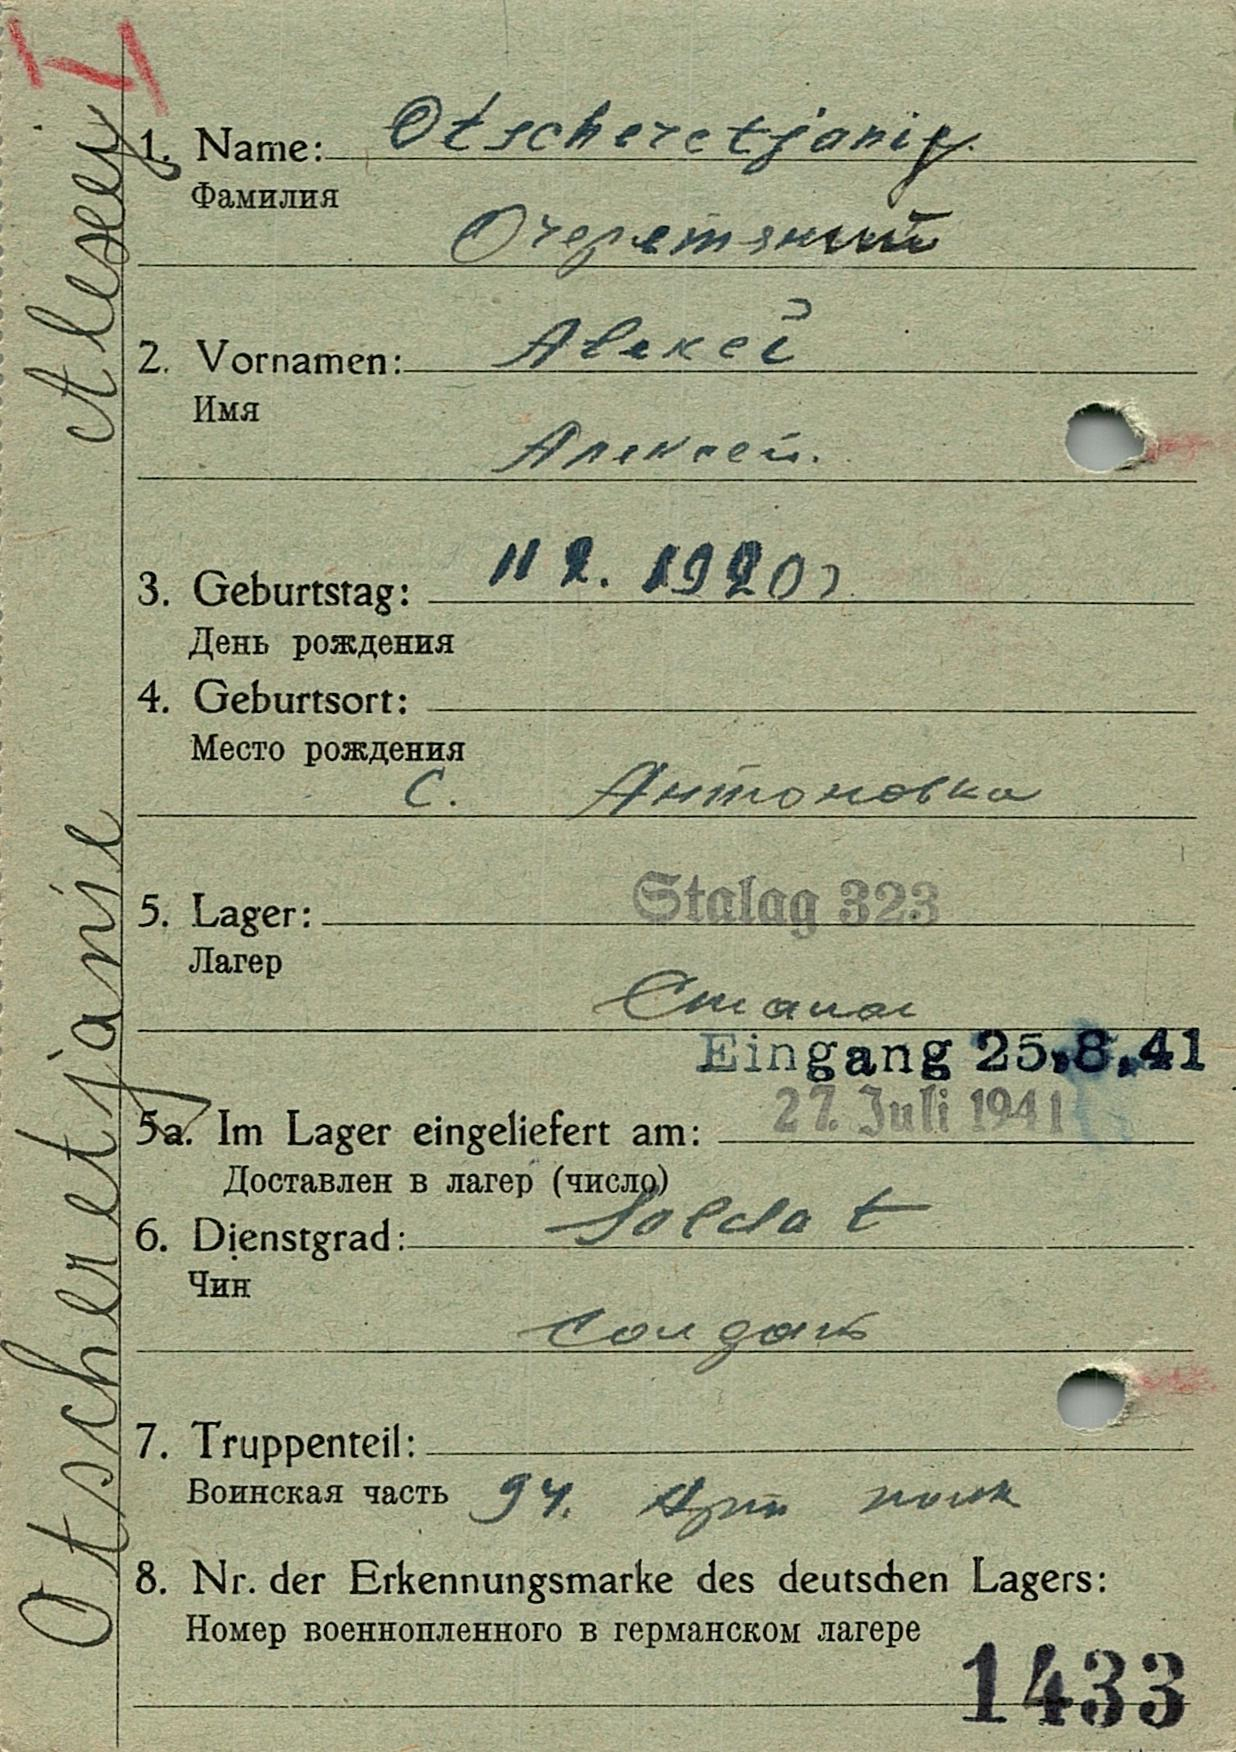 Otscheretjanie Alexej
1. Name: Otscheretjanij.
Фамилия
Очеретяний
2. Vornamen: Alekcei
Имя
Алексей.
3. Geburtstag: 11 2. 1920 г
День рождения
4. Geburtsort:
Место рождения
С. Антоновка
5. Lager: Stalag 323
Лагер
Eingang 25.8.41
27. Juli 1941
5a. Im Lager eingeliefert am:
Доставлен в лагер (число)
6. Dienstgrad: Soldat
Чин
солдат
7. Truppenteil:
Воинская часть 94. Арт полк
8. Nr. der Erkennungsmarke des deutschen Lagers:
Номер военнопленного в германском лагере
1433